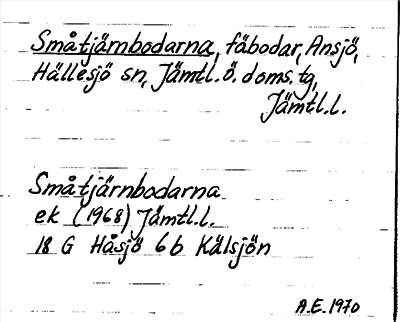 Småtjärnbodarna, fäbodar, Ansjö,
Hällesjö sn, Jämtl.ö. doms. tg,
Jämtl.l.
Småtjärnbodarna
ek (1968) Jämtl.l.
18 G Håsjö 6b Kälsjön
A.E. 1970